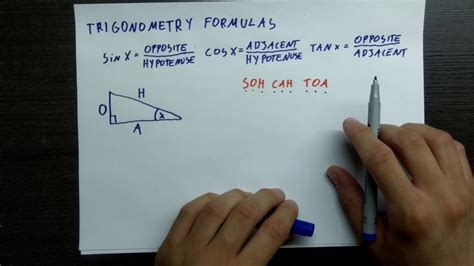 TRIGONOMETRY FORMULAS
sin x = OPPOSITE/HYPOTENUSE cos x = ADJACENT/HYPOTENUSE TAN x = OPPOSITE/ADJACENT
SOH CAH TOA
H
O
x
A